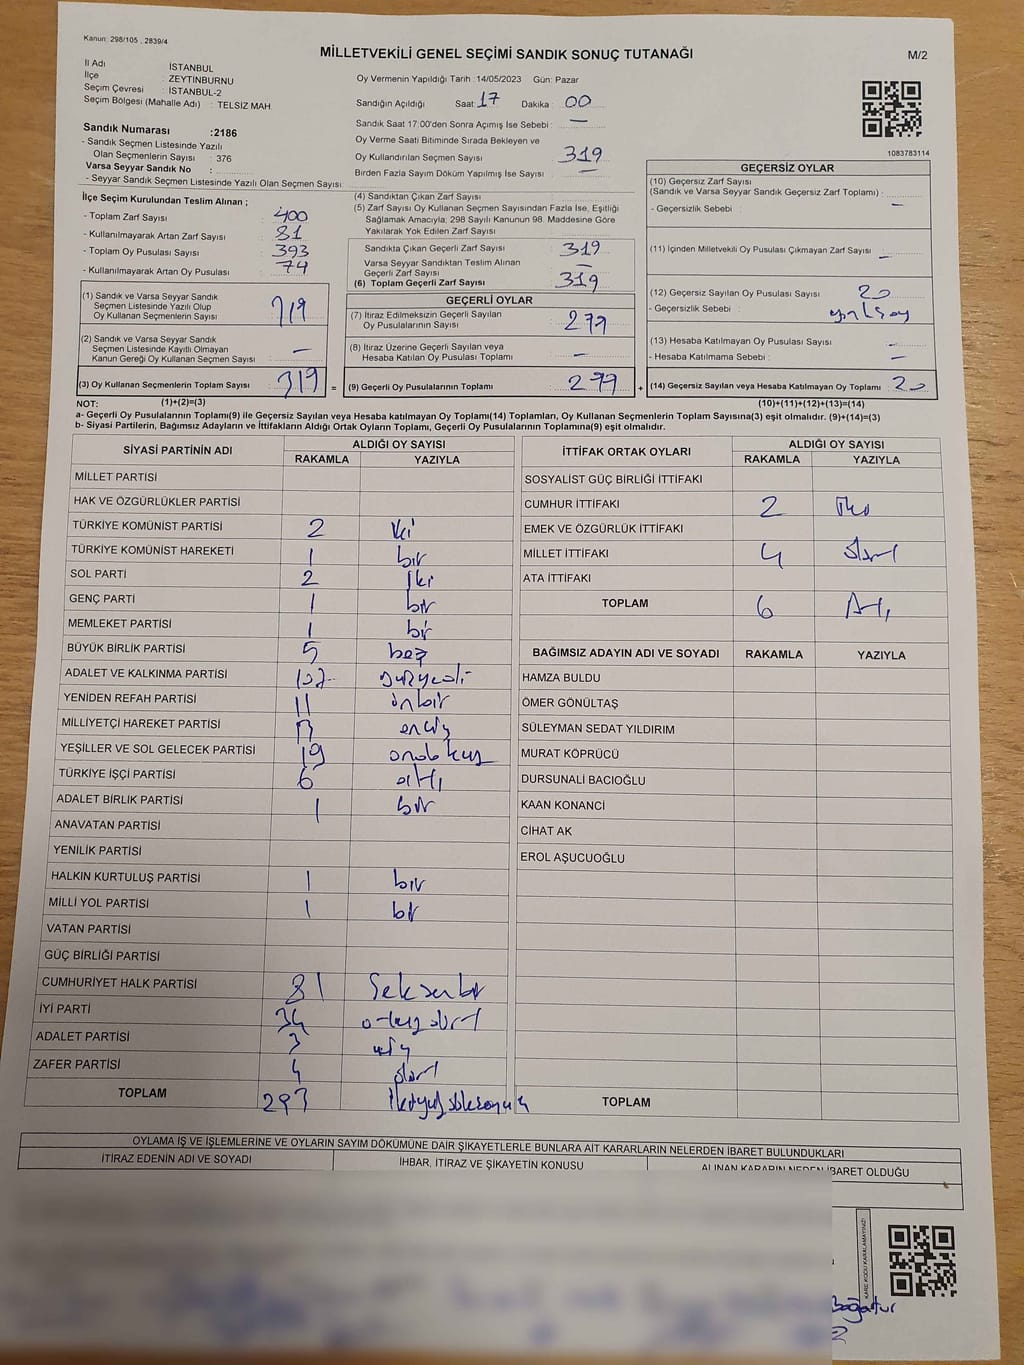 Kanun: 298/105 , 2839/4
MİLLETVEKİLİ GENEL SEÇİMİ SANDIK SONUÇ TUTANAĞI
M/2
İl Adı İSTANBUL
İlçe : ZEYTİNBURNU
Seçim Çevresi : İSTANBUL-2
Seçim Bölgesi (Mahalle Adı) : TELSİZ MAH.
Sandık Numarası :2186
- Sandık Seçmen Listesinde Yazılı
Olan Seçmenlerin Sayısı : 376
Varsa Seyyar Sandık No :
- Seyyar Sandık Seçmen Listesinde Yazılı Olan Seçmen Sayısı:
Oy Vermenin Yapıldığı Tarih : 14/05/2023 Gün: Pazar
Sandığın Açıldığı Saat: 17 Dakika : 00
Sandık Saat 17:00'den Sonra Açılmış İse Sebebi : —
Oy Verme Saati Bitiminde Sırada Bekleyen ve
Oy Kullandırılan Seçmen Sayısı 319
Birden Fazla Sayım Döküm Yapılmış İse Sayısı : —
1083783114
İlçe Seçim Kurulundan Teslim Alınan ;
- Toplam Zarf Sayısı : 400
- Kullanılmayarak Artan Zarf Sayısı : 81
- Toplam Oy Pusulası Sayısı : 393
- Kullanılmayarak Artan Oy Pusulası : 74
(1) Sandık ve Varsa Seyyar Sandık
Seçmen Listesinde Yazılı Olup
Oy Kullanan Seçmenlerin Sayısı :
(2) Sandık ve Varsa Seyyar Sandık
Seçmen Listesinde Kayıtlı Olmayan
Kanun Gereği Oy Kullanan Seçmen Sayısı : —
(3) Oy Kullanan Seçmenlerin Toplam Sayısı : 319 =
(4) Sandıktan Çıkan Zarf Sayısı :
(5) Zarf Sayısı Oy Kullanan Seçmen Sayısından Fazla İse, Eşitliği
Sağlamak Amacıyla; 298 Sayılı Kanunun 98. Maddesine Göre
Yakılarak Yok Edilen Zarf Sayısı :
Sandıkta Çıkan Geçerli Zarf Sayısı : 319
Varsa Seyyar Sandıktan Teslim Alınan
Geçerli Zarf Sayısı : —
(6) Toplam Geçerli Zarf Sayısı : 319
GEÇERLİ OYLAR
(7) İtiraz Edilmeksizin Geçerli Sayılan
Oy Pusulalarının Sayısı : 299
(8) İtiraz Üzerine Geçerli Sayılan veya
Hesaba Katılan Oy Pusulası Toplamı : —
(9) Geçerli Oy Pusulalarının Toplamı : 299 +
GEÇERSİZ OYLAR
(10) Geçersiz Zarf Sayısı
(Sandık ve Varsa Seyyar Sandık Geçersiz Zarf Toplamı) : —
- Geçersizlik Sebebi :
(11) İçinden Milletvekili Oy Pusulası Çıkmayan Zarf Sayısı : —
(12) Geçersiz Sayılan Oy Pusulası Sayısı : 20
- Geçersizlik Sebebi :
(13) Hesaba Katılmayan Oy Pusulası Sayısı : —
- Hesaba Katılmama Sebebi : —
(14) Geçersiz Sayılan veya Hesaba Katılmayan Oy Toplamı : 20
NOT: (1)+(2)=(3) (10)+(11)+(12)+(13)=(14)
a- Geçerli Oy Pusulalarının Toplamı(9) ile Geçersiz Sayılan veya Hesaba katılmayan Oy Toplamı(14) Toplamları, Oy Kullanan Seçmenlerin Toplam Sayısına(3) eşit olmalıdır. (9)+(14)=(3)
b- Siyasi Partilerin, Bağımsız Adayların ve İttifakların Aldığı Ortak Oyların Toplamı, Geçerli Oy Pusulalarının Toplamına(9) eşit olmalıdır.
SİYASİ PARTİNİN ADI ALDIĞI OY SAYISI
RAKAMLA YAZIYLA
MİLLET PARTİSİ
HAK VE ÖZGÜRLÜKLER PARTİSİ
TÜRKİYE KOMÜNİST PARTİSİ 2 iki
TÜRKİYE KOMÜNİST HAREKETİ 1 bir
SOL PARTİ 2 iki
GENÇ PARTİ 1 bir
MEMLEKET PARTİSİ 1 bir
BÜYÜK BİRLİK PARTİSİ 5 beş
ADALET VE KALKINMA PARTİSİ 107
YENİDEN REFAH PARTİSİ 11 onbir
MİLLİYETÇİ HAREKET PARTİSİ 13 onüç
YEŞİLLER VE SOL GELECEK PARTİSİ 19 ondokuz
TÜRKİYE İŞÇİ PARTİSİ 6 altı
ADALET BİRLİK PARTİSİ 1 bir
ANAVATAN PARTİSİ
YENİLİK PARTİSİ
HALKIN KURTULUŞ PARTİSİ 1 bir
MİLLİ YOL PARTİSİ 1 bir
VATAN PARTİSİ
GÜÇ BİRLİĞİ PARTİSİ
CUMHURİYET HALK PARTİSİ 81 Seksenbir
İYİ PARTİ 34 otuzdört
ADALET PARTİSİ 3 üç
ZAFER PARTİSİ 4 dört
TOPLAM 293
İTTİFAK ORTAK OYLARI ALDIĞI OY SAYISI
RAKAMLA YAZIYLA
SOSYALİST GÜÇ BİRLİĞİ İTTİFAKI
CUMHUR İTTİFAKI 2 iki
EMEK VE ÖZGÜRLÜK İTTİFAKI
MİLLET İTTİFAKI 4 dört
ATA İTTİFAKI
TOPLAM 6 Altı
BAĞIMSIZ ADAYIN ADI VE SOYADI RAKAMLA YAZIYLA
HAMZA BULDU
ÖMER GÖNÜLTAŞ
SÜLEYMAN SEDAT YILDIRIM
MURAT KÖPRÜCÜ
DURSUNALİ BACIOĞLU
KAAN KONANCİ
CİHAT AK
EROL AŞUCUOĞLU
TOPLAM
OYLAMA İŞ VE İŞLEMLERİNE VE OYLARIN SAYIM DÖKÜMÜNE DAİR ŞİKAYETLERLE BUNLARA AİT KARARLARIN NELERDEN İBARET BULUNDUKLARI
İTİRAZ EDENİN ADI VE SOYADI İHBAR, İTİRAZ VE ŞİKAYETİN KONUSU ALINAN KARARIN NEDEN İBARET OLDUĞU
KARE KODU KARALAMAYINIZ!